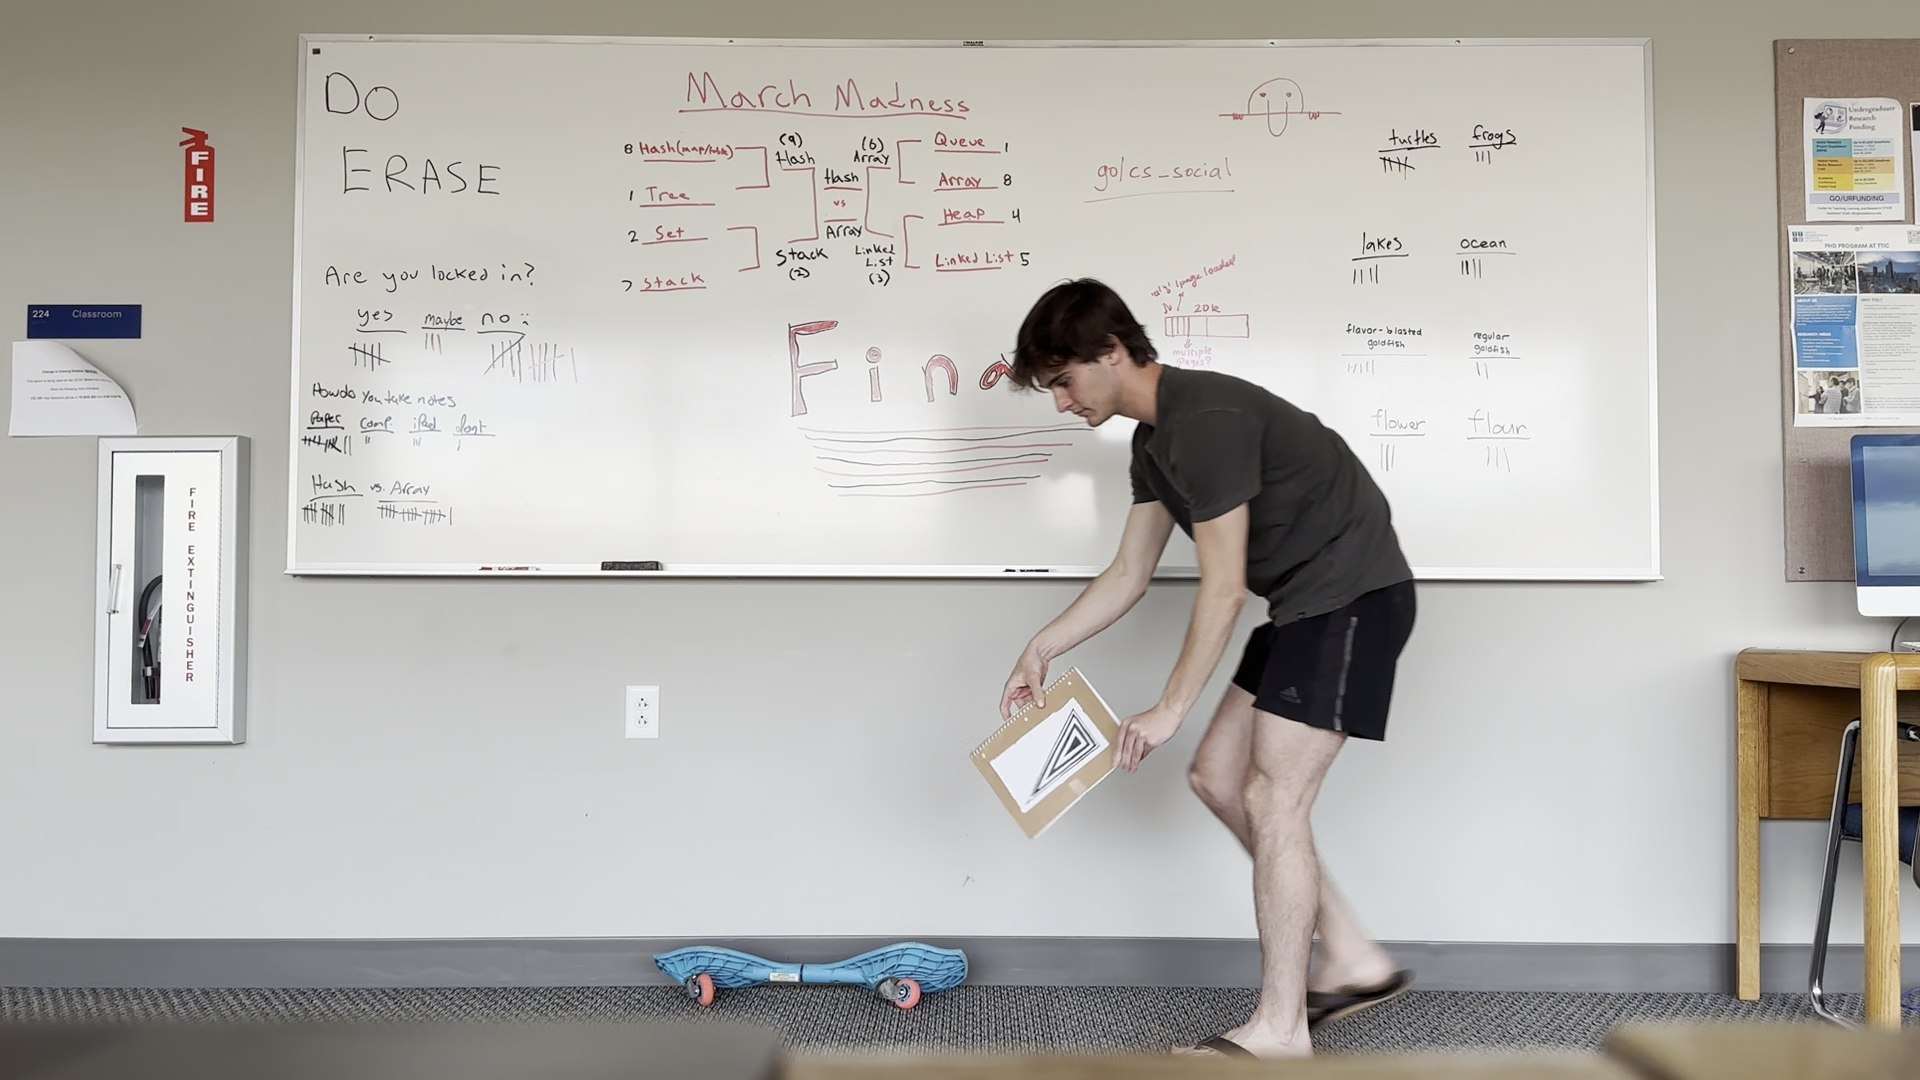 DO
ERASE
Are you locked in?
yes
maybe
no
How do you take notes
Paper
Comp.
iPad
dont
Hash vs. Array
March Madness
8 Hash(map/table)
1 Tree
2 Set
7 Stack
(9)
Hash
Stack
(2)
Hash
vs
Array
(6)
Array
Linked
List
(3)
Queue 1
Array 8
Heap 4
Linked List 5
Fina
go/cs_social
20k
multiple
pages?
turtles
frogs
lakes
ocean
flavor-blasted
goldfish
regular
goldfish
flower
flour
FIRE
224 Classroom
FIRE EXTINGUISHER
Undergraduate
Research
Funding
GO/URFUNDING
PHD PROGRAM AT TTIC